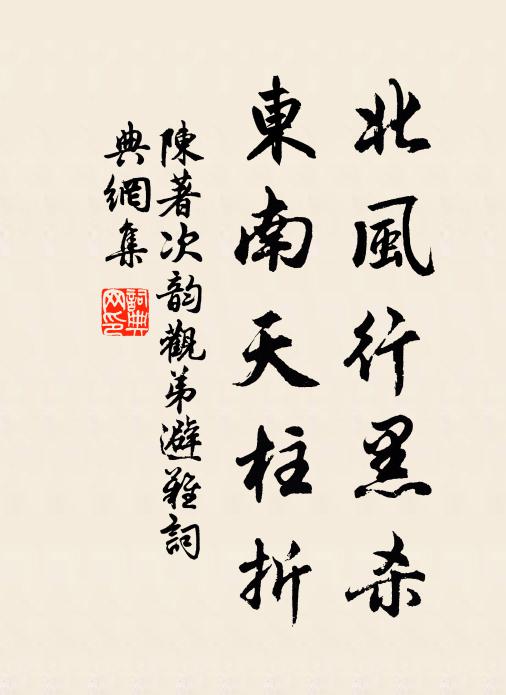 北風行黑杀
東南天柱折
陳著次韵觀弟避難詞
典網集
詞典網印